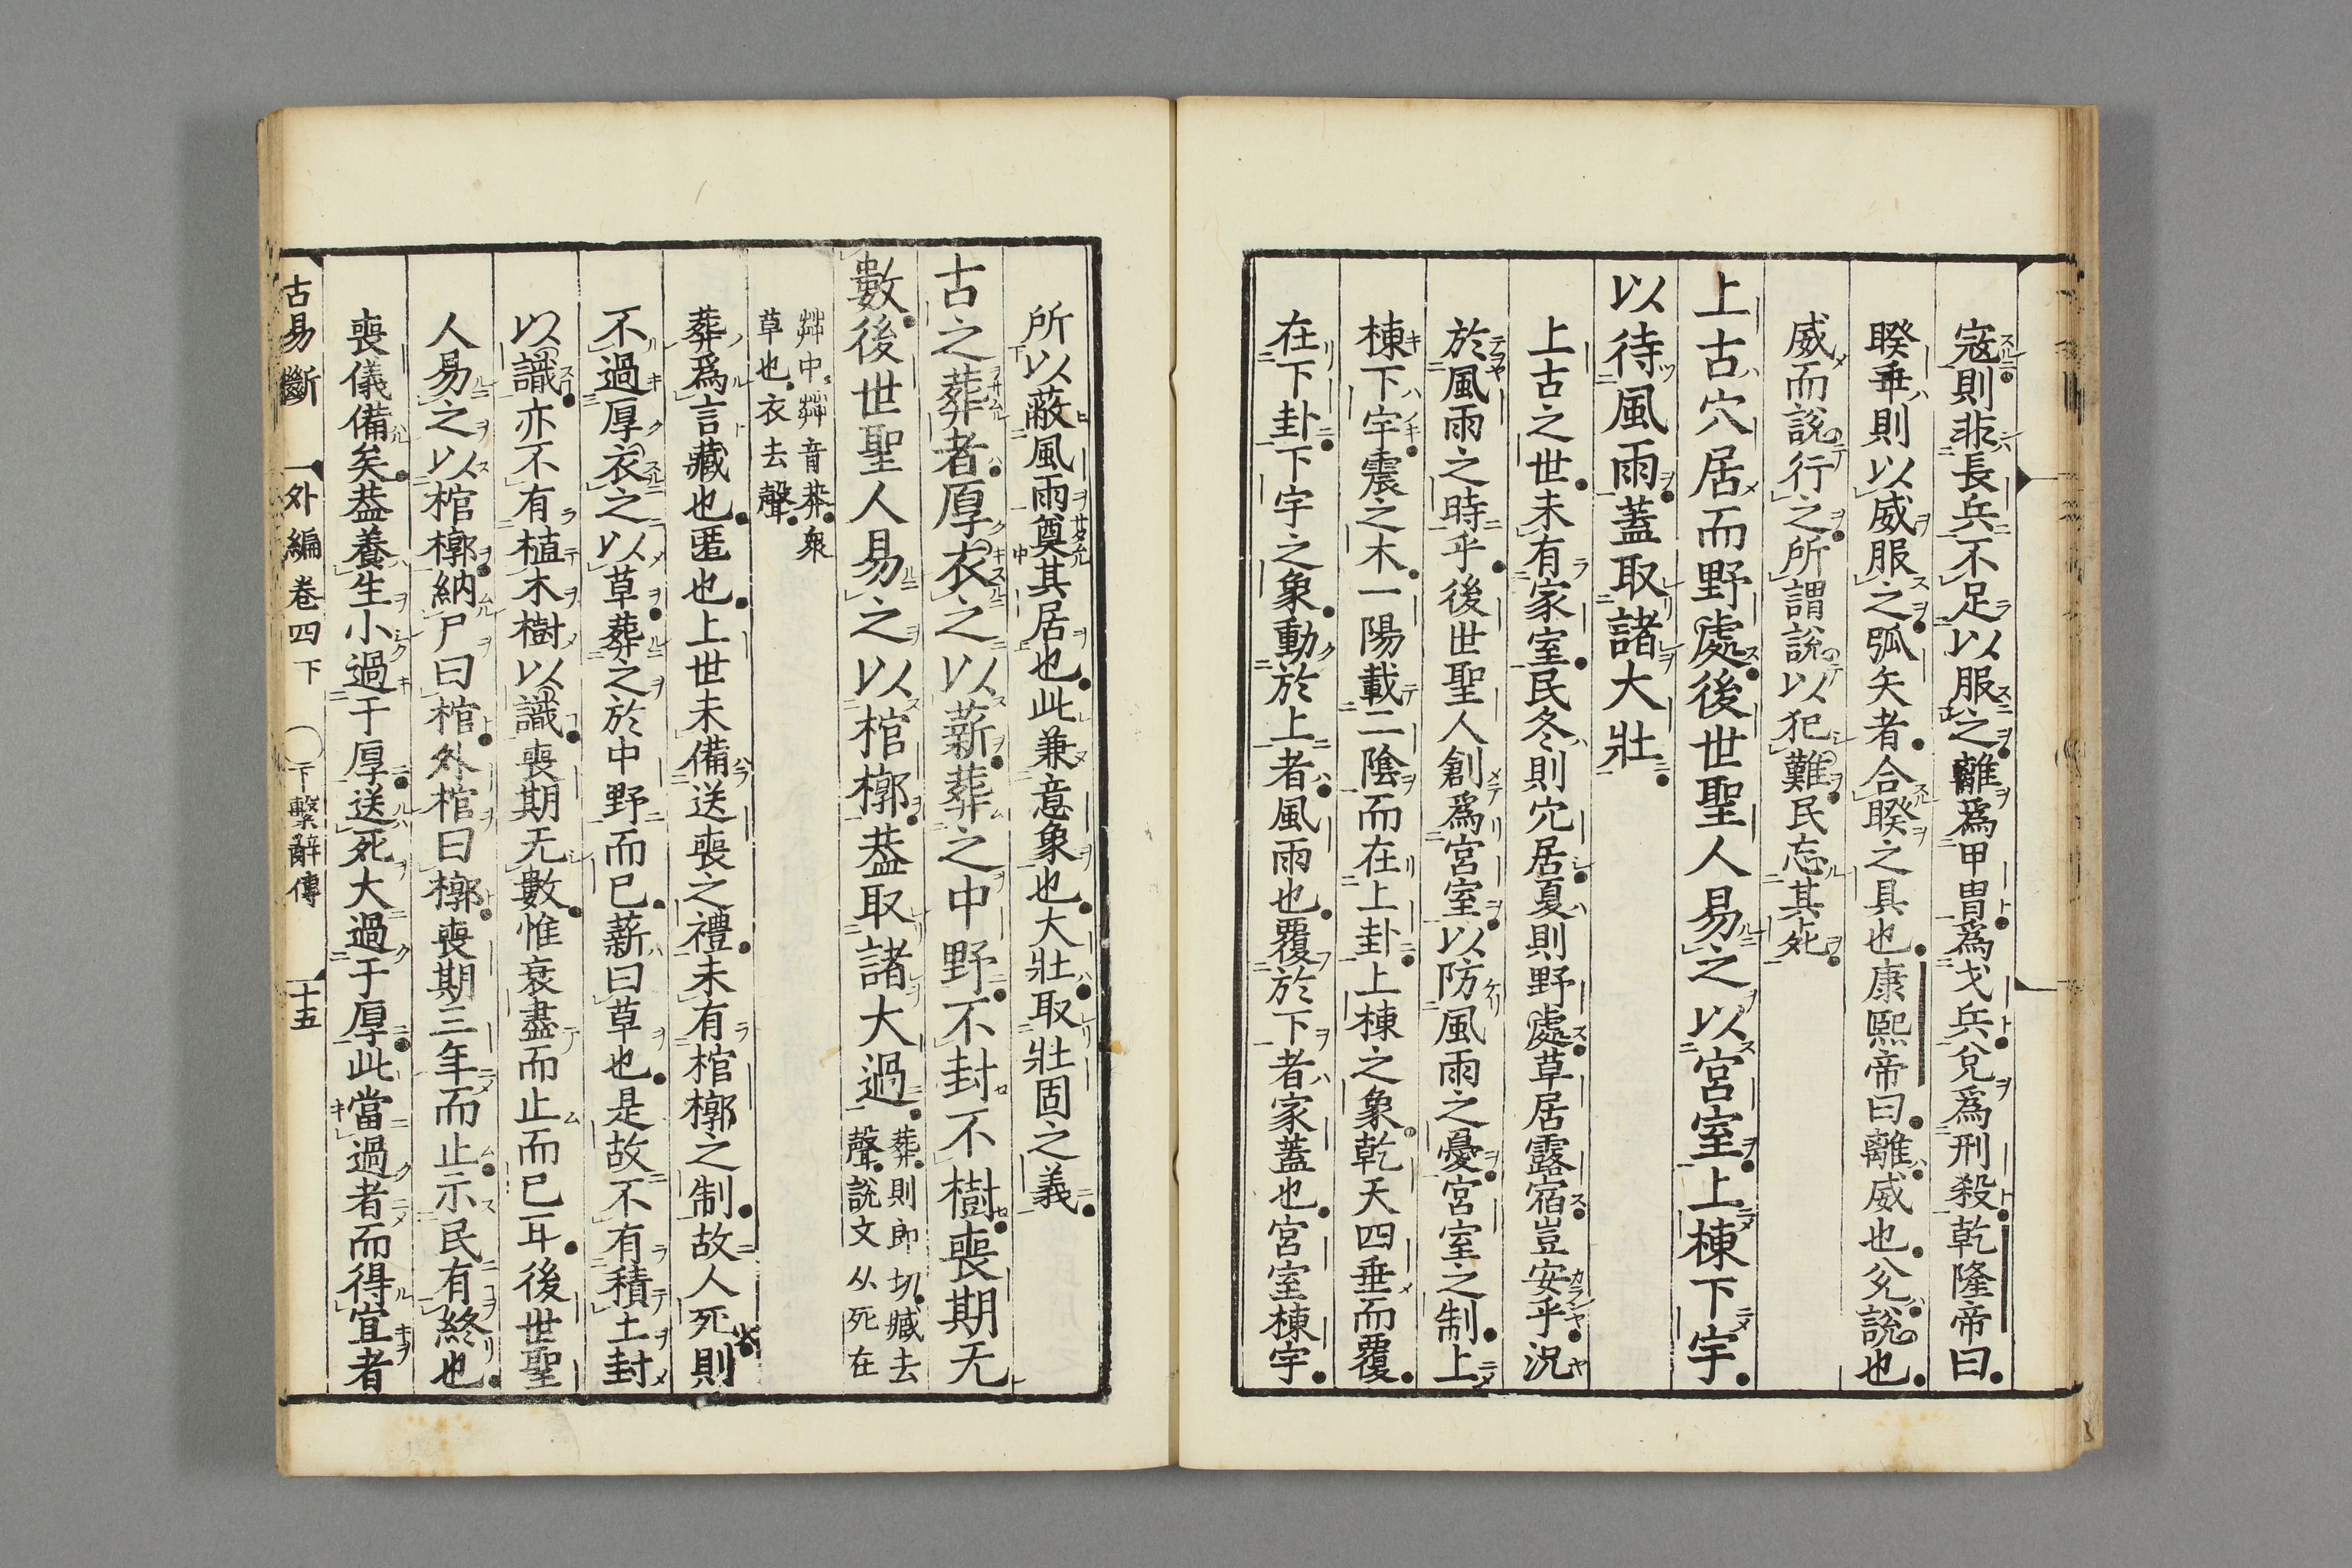 寇則非長兵不足以服之離爲甲冑爲戈兵兌爲刑殺乾隆帝曰
睽乖則以威服之弧矢者合睽之具也康熙帝曰離威也兊說也
威而說行之所謂說以犯難民忘其死
上古穴居而野處後世聖人易之以宮室上棟下宇
以待風雨蓋取諸大壯
上古之世未有家室民冬則穴居夏則野處草居露宿豈安乎況
於風雨之時乎後世聖人創爲宮室以防風雨之憂宮室之制上
棟下宇震之木一陽載二陰而在上卦上棟之象乾天四垂而覆
在下卦下宇之象動於上者風雨也覆於下者家蓋也宮室棟宇
所以蔽風雨奠其居也此兼意象也大壯取壯固之義
古之葬者厚衣之以薪葬之中野不封不樹喪期无
數後世聖人易之以棺槨葢取諸大過
葬則郎切臧去
聲說文从死在
茻中茻音莽衆
草也衣去聲
葬爲言藏也匿也上世未備送喪之禮未有棺槨之制故人死則
不過厚衣之以草葬之於中野而已薪曰草也是故不有積土封
以識亦不有植木樹以識喪期无數惟哀盡而止而已耳後世聖
人易之以棺槨納尸曰棺外棺曰槨喪期三年而止示民有終也
喪儀備矣葢養生小過于厚送死大過于厚此當過者而得宜者
古易斷 外編卷四下 ○下繫辭傳 十五